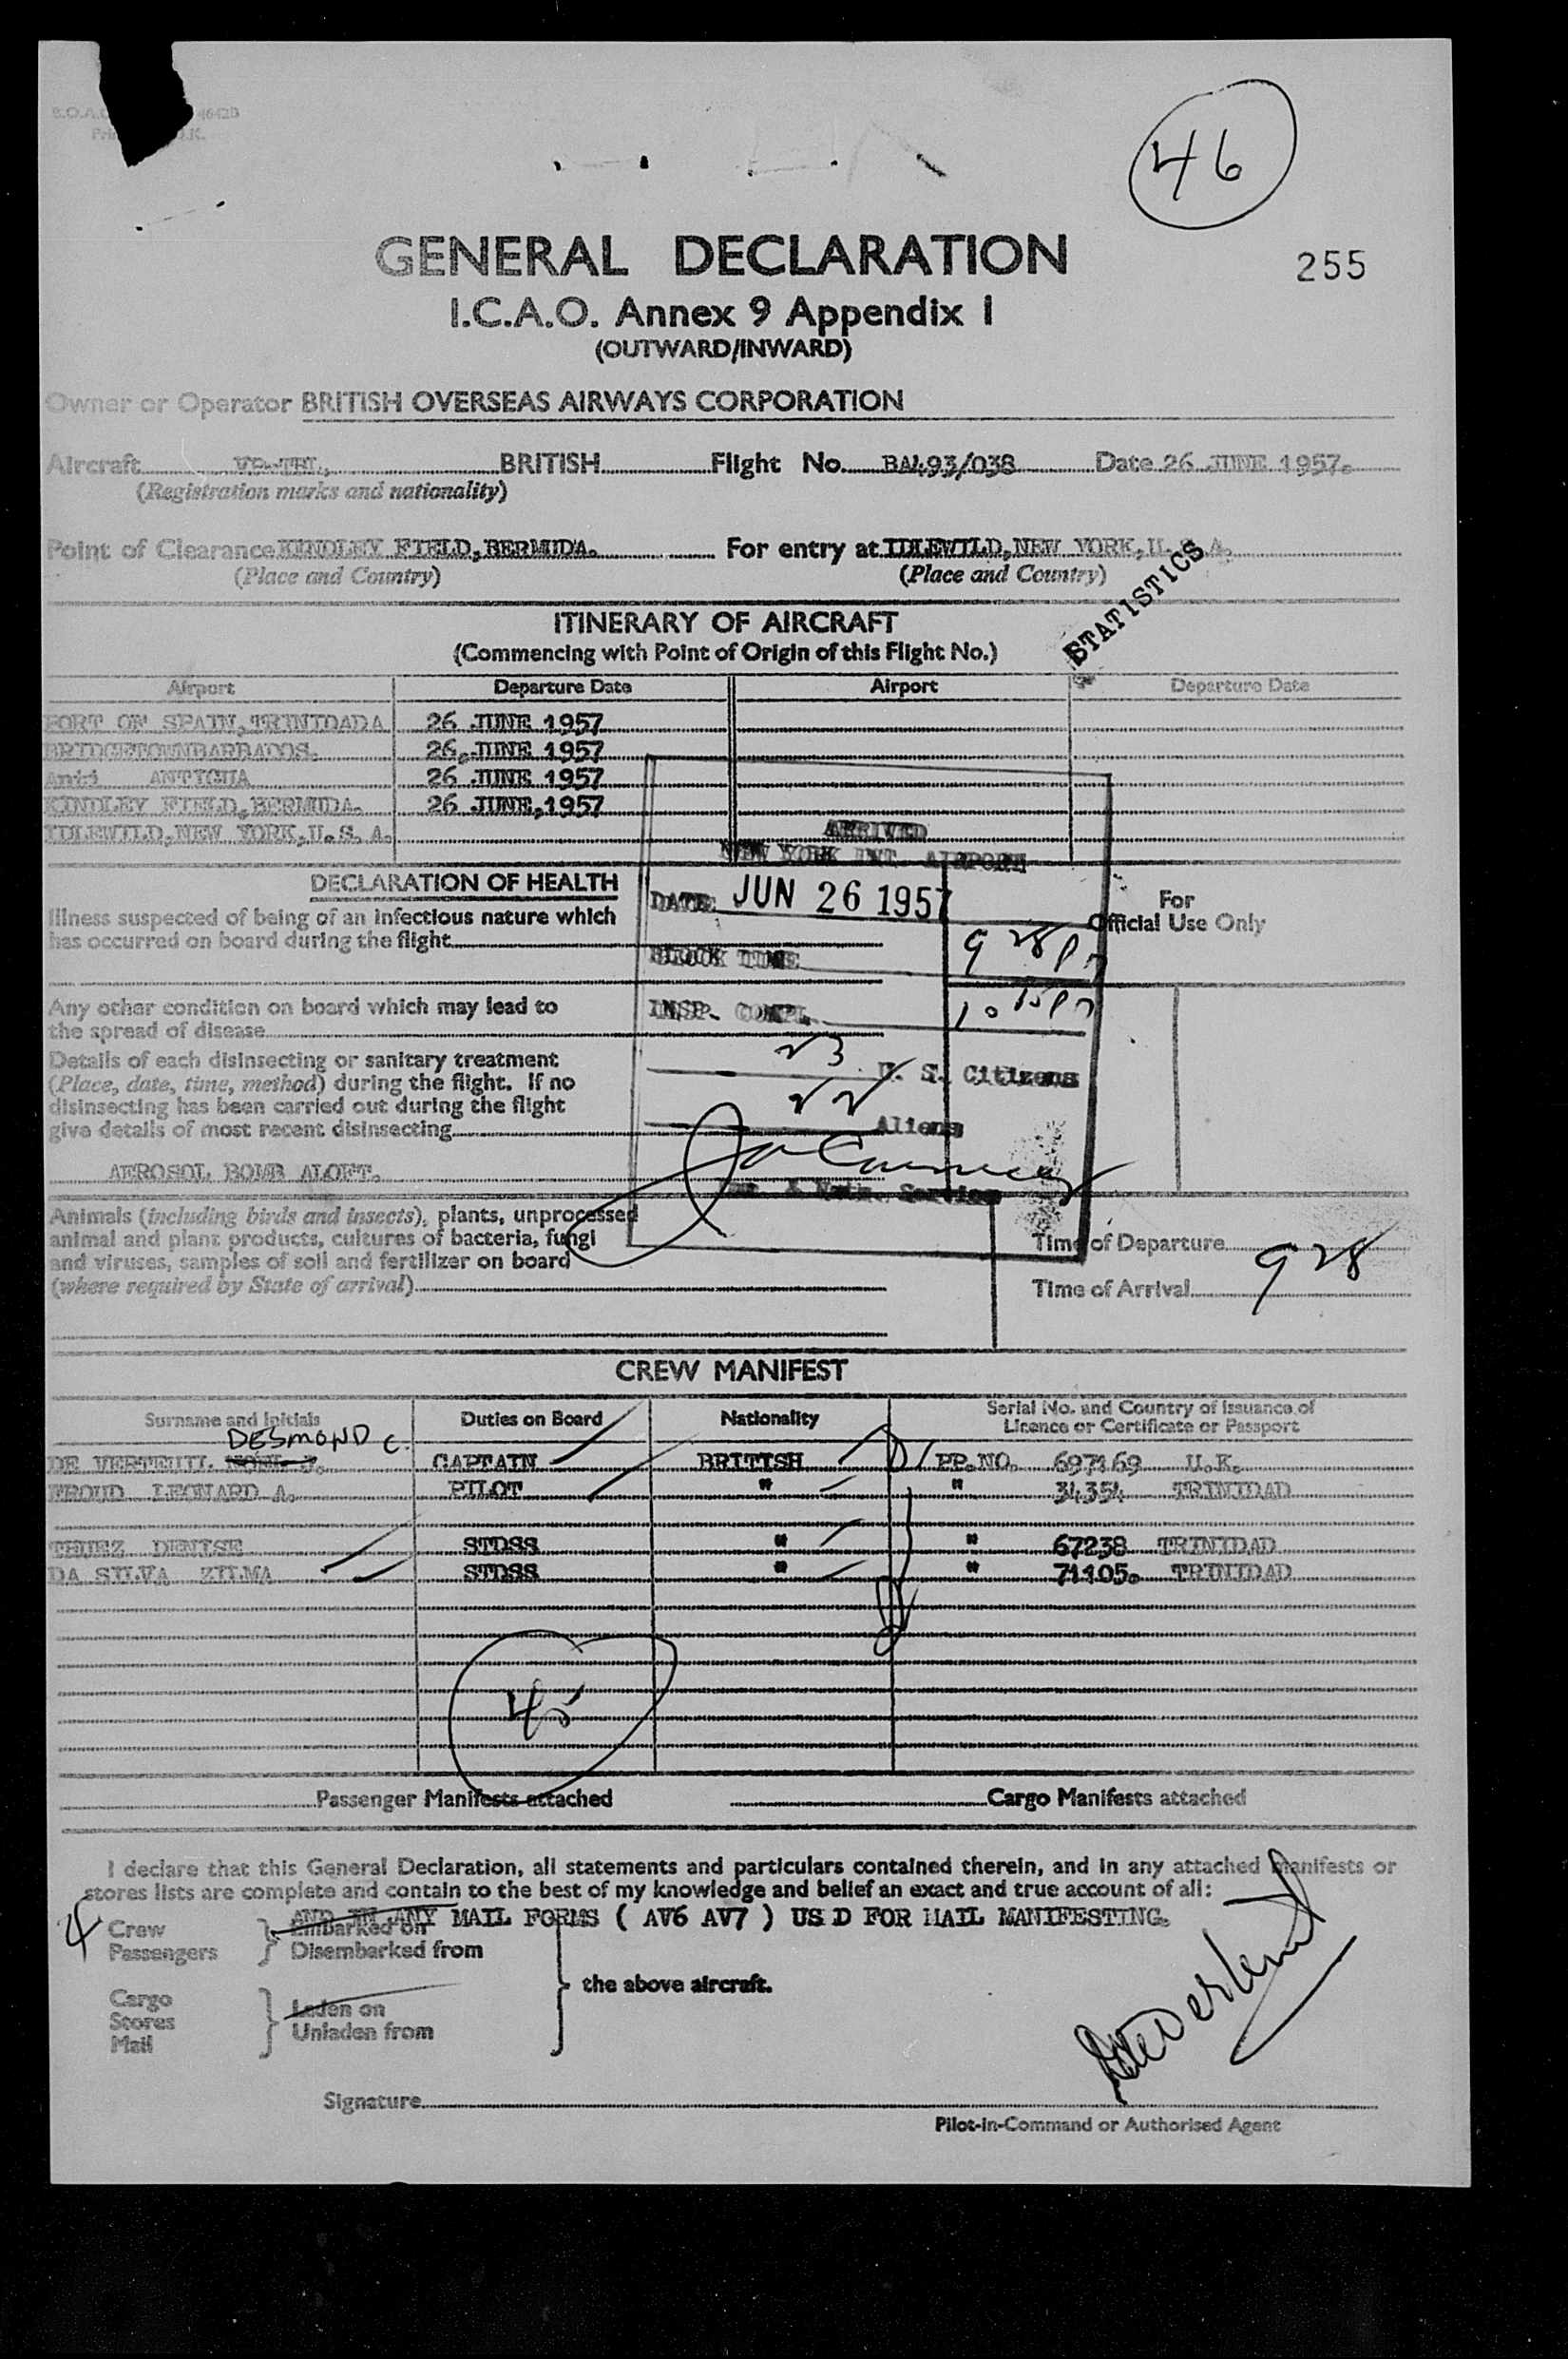 46
GENERAL DECLARATION
255
I.C.A.O. Annex 9 Appendix I
(OUTWARD/INWARD)
Owner or Operator BRITISH OVERSEAS AIRWAYS CORPORATION
Aircraft VP-TBL, BRITISH Flight No. BA493/038 Date 26 JUNE 1957.
(Registration marks and nationality)
Point of Clearance KINDLEY FIELD, BERMUDA. For entry at IDLEWILD, NEW YORK, U.S.A.
(Place and Country) (Place and Country)
STATISTICS
ITINERARY OF AIRCRAFT
(Commencing with Point of Origin of this Flight No.)
Airport Departure Date Airport Departure Date
PORT OF SPAIN, TRINIDADA 26 JUNE 1957
BRIDGETOWNBARBADOS. 26, JUNE 1957
ANTIGUA 26 JUNE 1957
KINDLEY FIELD, BERMUDA. 26 JUNE, 1957
IDLEWILD, NEW YORK, U.S.A.
ARRIVED
NEW YORK INT. AIRPORT
DATE JUN 26 1957
BLOCK TIME 9 28 P
INSP. COMPL. 10 15 P
23 U. S. Citizens
22 Aliens
& Natz. Service
DECLARATION OF HEALTH
For
Official Use Only
Illness suspected of being of an infectious nature which
has occurred on board during the flight
Any other condition on board which may lead to
the spread of disease
Details of each disinsecting or sanitary treatment
(Place, date, time, method) during the flight. If no
disinsecting has been carried out during the flight
give details of most recent disinsecting
AEROSOL BOMB ALOFT.
Animals (including birds and insects), plants, unprocessed
animal and plant products, cultures of bacteria, fungi
and viruses, samples of soil and fertilizer on board
(where required by State of arrival)
Time of Departure
Time of Arrival 9 28
CREW MANIFEST
Surname and Initials Duties on Board Nationality Serial No. and Country of Issuance of
Licence or Certificate or Passport
DESMOND C.
DE VERTEUIL CAPTAIN BRITISH PP.NO. 697169 U.K.
FROUD LEONARD A. PILOT " " 34354 TRINIDAD
DENISE STDSS " " 67238 TRINIDAD
DA SILVA ZILMA STDSS " " 71105. TRINIDAD
45
Passenger Manifests attached Cargo Manifests attached
I declare that this General Declaration, all statements and particulars contained therein, and in any attached manifests or
stores lists are complete and contain to the best of my knowledge and belief an exact and true account of all:
AND IN ANY MAIL FORMS ( AV6 AV7 ) US D FOR MAIL MANIFESTING.
4 Crew Embarked on
Passengers Disembarked from
the above aircraft.
Cargo Laden on
Stores Unladen from
Mail
Signature
Pilot-in-Command or Authorised Agent